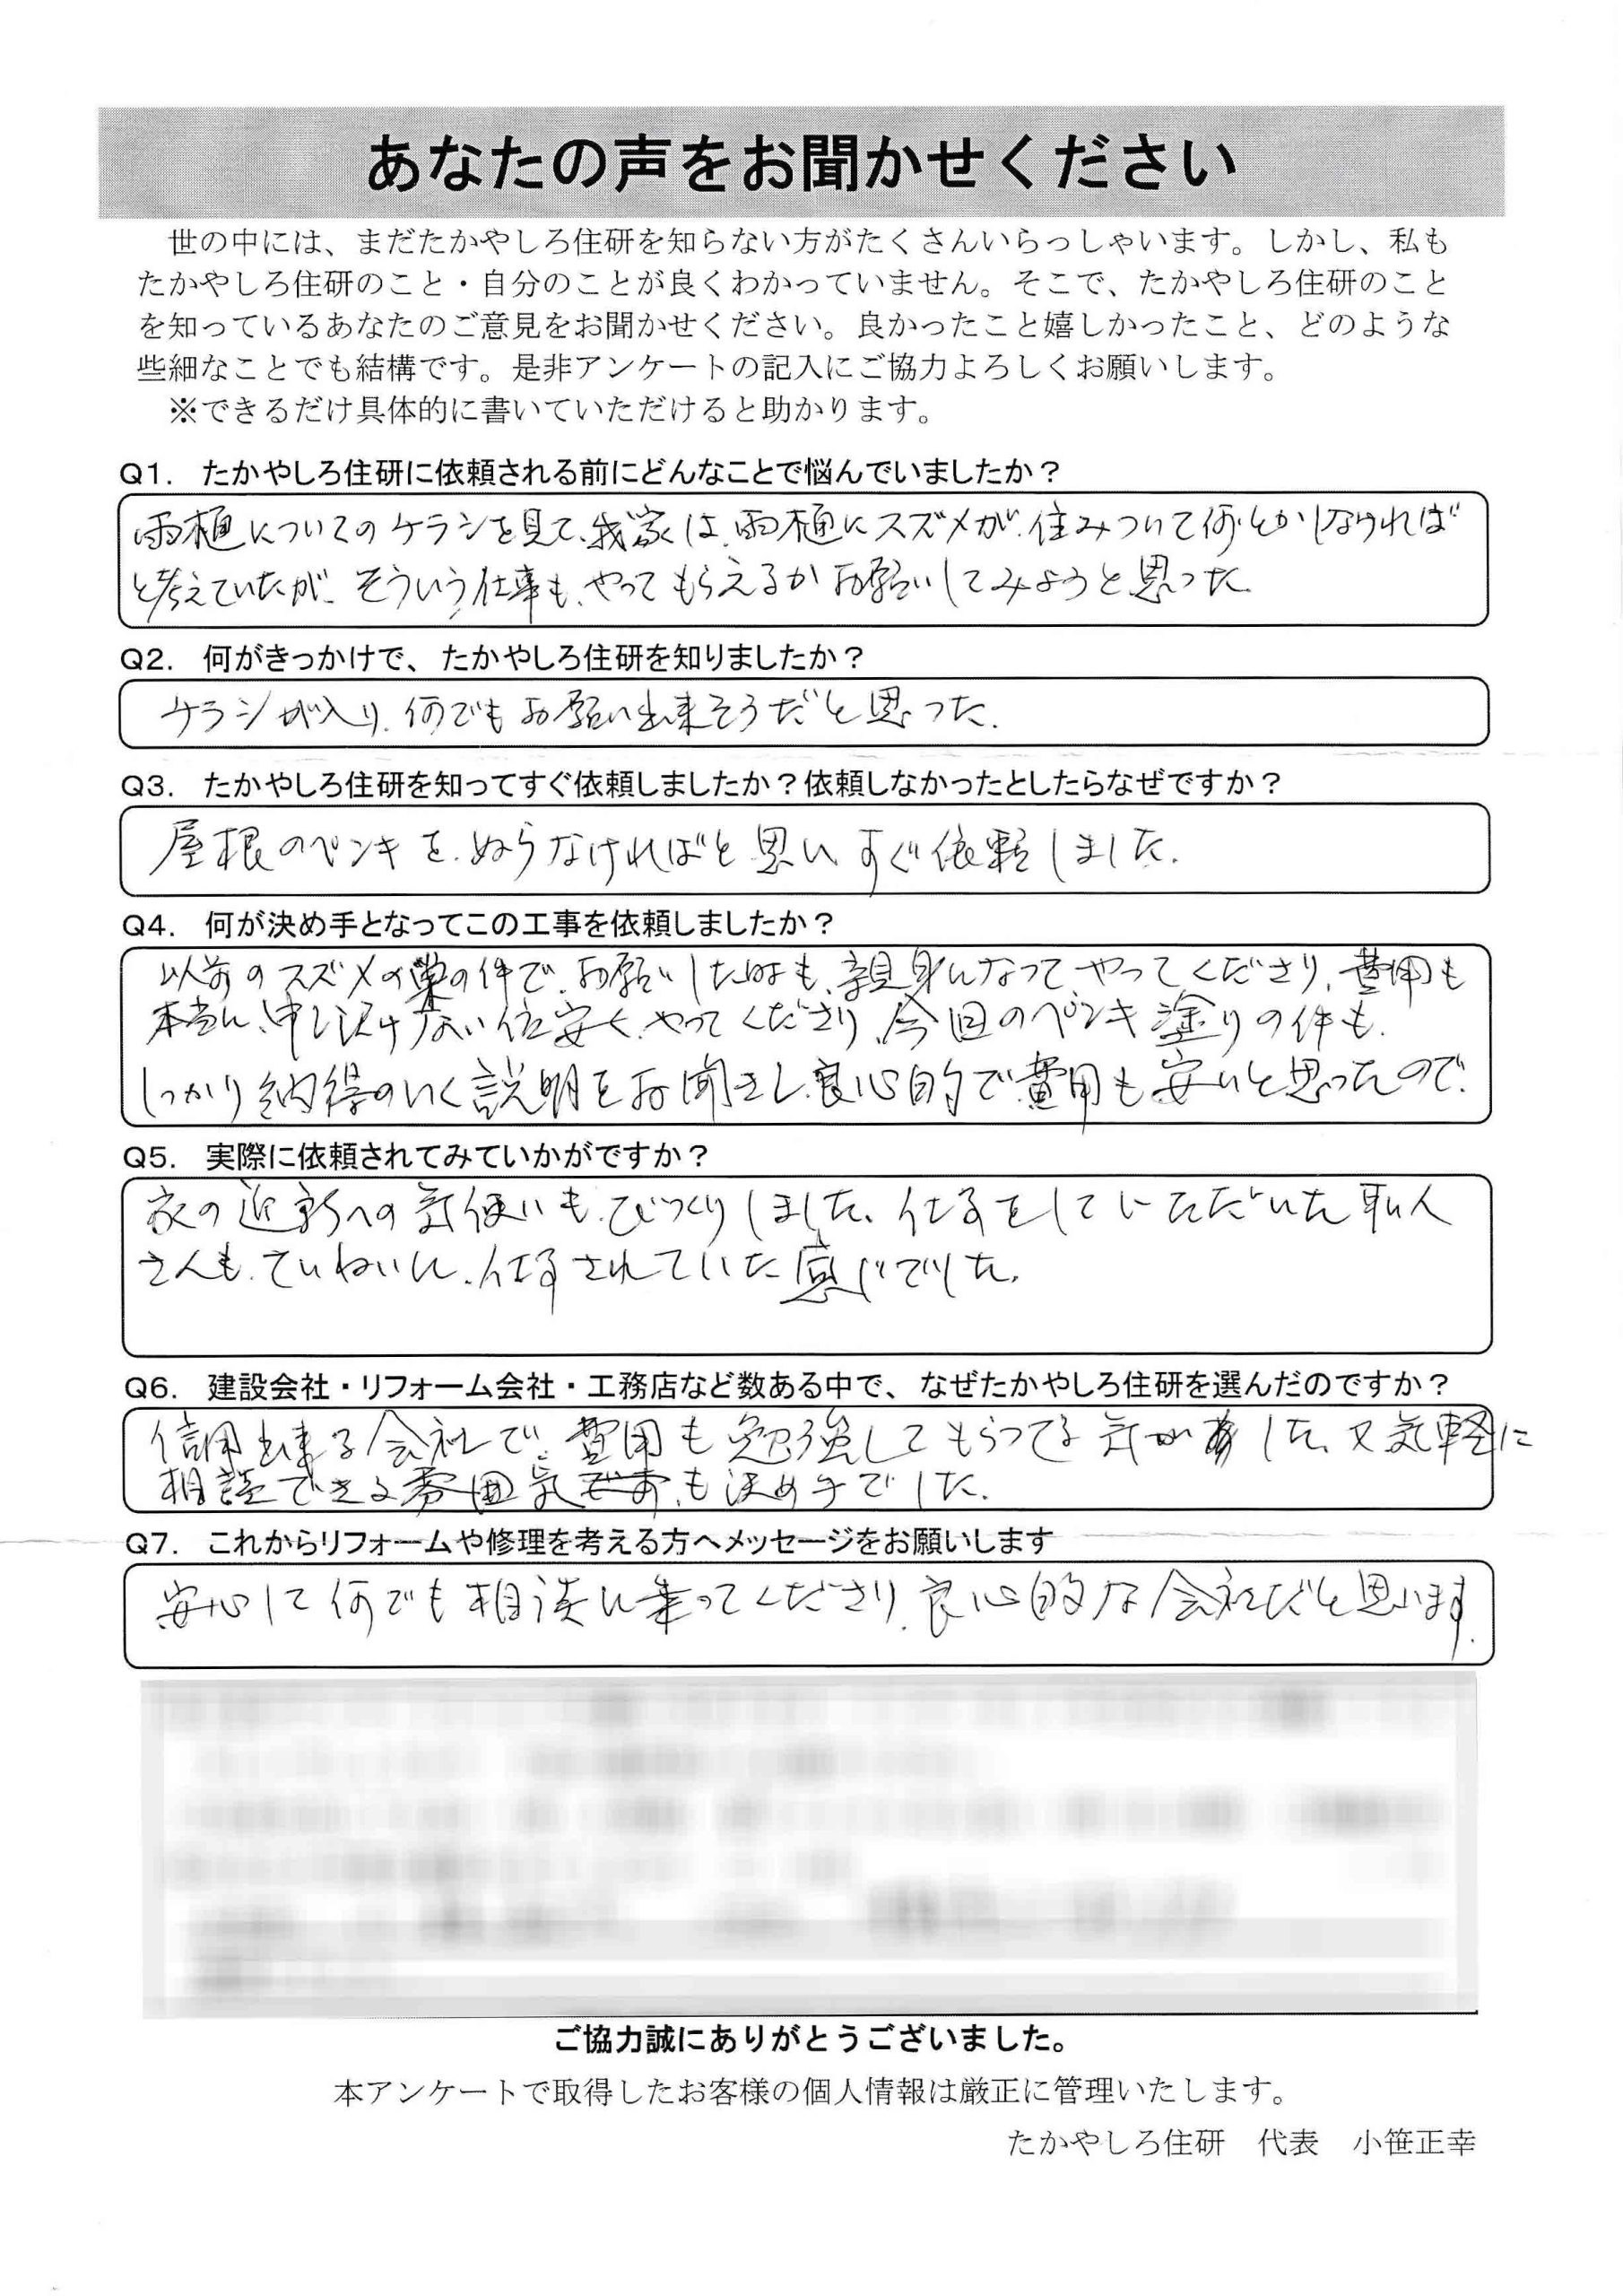 あなたの声をお聞かせください
世の中には、まだたかやしろ住研を知らない方がたくさんいらっしゃいます。しかし、私も
たかやしろ住研のこと・自分のことが良くわかっていません。そこで、たかやしろ住研のこと
を知っているあなたのご意見をお聞かせください。良かったこと嬉しかったこと、どのような
些細なことでも結構です。是非アンケートの記入にご協力よろしくお願いします。
※できるだけ具体的に書いていただけると助かります。
Q1. たかやしろ住研に依頼される前にどんなことで悩んでいましたか？
雨樋についてのケラシを見て、我家は、雨樋にスズメが住みついて何とかしなければ
と考えていたが、そういう仕事も、やってもらえるかお願いしてみようと思った
Q2. 何がきっかけで、たかやしろ住研を知りましたか？
ケラシが入り、何でもお願い出来そうだと思った.
Q3. たかやしろ住研を知ってすぐ依頼しましたか？依頼しなかったとしたらなぜですか？
屋根のペンキを、ぬらなければと思いすぐ依頼しました.
Q4. 何が決め手となってこの工事を依頼しましたか？
以前のスズメの巣の件で、お願いした時も、親身になって、やってくださり、費用も
本当に、申し訳けない位安く、やってくださり、今回のペンキ塗りの件も、
しっかり納得のいく説明をお聞きし、良心的で費用も安いと思ったので.
Q5. 実際に依頼されてみていかがですか？
家の近所への気使いも、びっくりしました、仕事をしていただいた職人
さんも、ていねいに、仕事されていた感じでした.
Q6. 建設会社・リフォーム会社・工務店など数ある中で、なぜたかやしろ住研を選んだのですか？
信用出来る会社で、費用も勉強してもらってる気がしました、又気軽に
相談できる雰囲気も決め手でした.
Q7. これからリフォームや修理を考える方へメッセージをお願いします
安心して何でも相談に乗ってくださり、良心的な会社だと思います.
ご協力誠にありがとうございました。
本アンケートで取得したお客様の個人情報は厳正に管理いたします。
たかやしろ住研 代表 小笹正幸